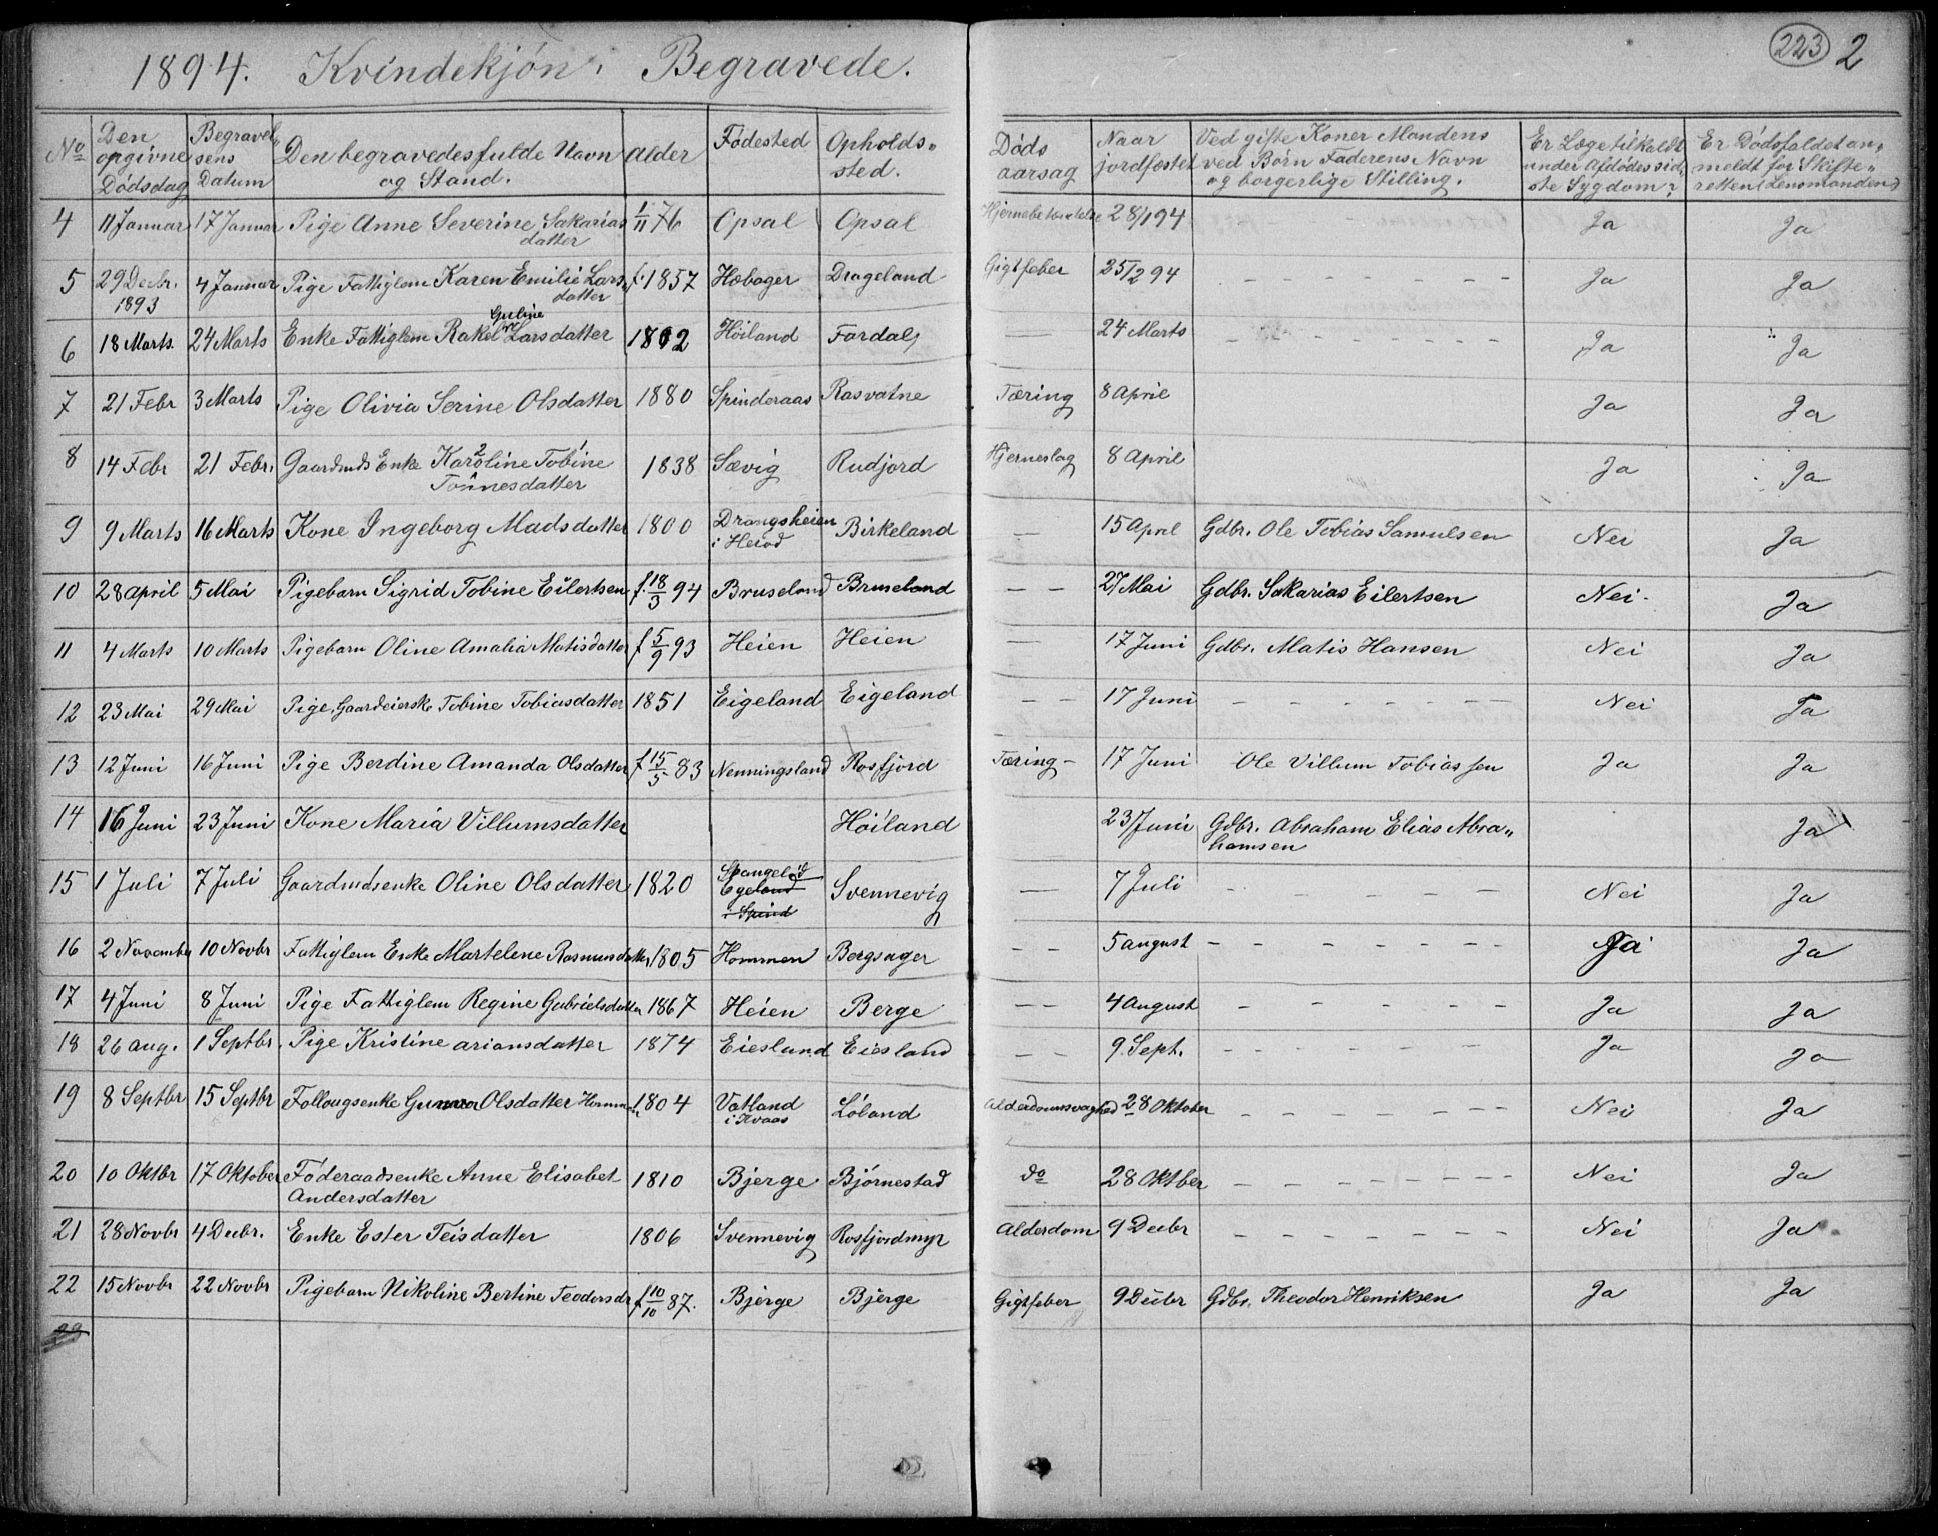 1894. Kvindekjøn. Begravede.
223 2
No | Den opgivne Dødsdag | Begravel„sens Datum | Den begravedes fulde Navn og Stand. | Alder | Fødested | Opholds„sted. | Døds aarsag | Naar jordfæstet | Ved gifte Koner Mandens ved Børn Faderens Navn og borgerlige Stilling. | Er Læge tilkaldt under Afdødes sid„ste Sygdom? | Er Dødsfaldet an„meldt for Skifte„retten (Lensmanden)
4 | 11 Januar | 17 Januar | Pige Anne Severine Sakarias datter | 1/11 76 | Opsal | Opsal | Hjernebetændelse | 28/1 94 | - | Ja | Ja
5 | 29 Decbr. 1893 | 4 Januar | Pige Fattiglem Karen Emilie Lars„datter | f. 1857 | Hæbager | Drageland | Gigtfeber | 25/2 94 | - - - - - | Ja | Ja
6 | 18 Marts | 24 Marts | Enke Fattiglem Rakel Guline Larsdatter | 1812 | Høiland | Fardal | — | 24 Marts | - - - - - - | Ja | Ja
7 | 21 Febr | 3 Marts | Pige Olivia Serine Olsdatter | 1880 | Spinderaas | Rasvatne | Tæring | 8 April | | Ja | Ja
8 | 14 Febr | 21 Febr. | Gaardmds Enke Karoline Tobine Tønnesdatter | 1838 | Sævig | Rudjord | Hjerneslag | 8 April | | Ja | Ja
9 | 9 Marts | 16 Marts | Kone Ingeborg Madsdatter | 1800 | Drangsheien i Herød | Birkeland | — | 15 April | Gdbr. Ole Tobias Samulsen | Nei | Ja
10 | 28 April | 5 Mai | Pigebarn Sigrid Tobine Eilertsen | f. 18/3 94 | Bruseland | Bruseland | - - | 27 Mai | Gdbr. Sakarias Eilertsen | Nei | Ja
11 | 4 Marts | 10 Marts | Pigebarn Oline Amalia Matisdatter | f 5/9 93 | Heien | Heien | — | 17 Juni | Gdbr. Matis Hansen | Nei | Ja
12 | 23 Mai | 29 Mai | Pige, Gaardeierske Tobine Tobiasdatter | 1851 | Eigeland | Eigeland | - - | 17 Juni | - - - - - - | Nei | Ja
13 | 12 Juni | 16 Juni | Pige Berdine Amanda Olsdatter | f 15/5 83 | Nenningsland | Rosfjord | Tæring - | 17 Juni | Ole Villum Tobiassen | Ja | Ja
14 | 16 Juni | 23 Juni | Kone Maria Villumsdatter | | | Høiland | — | 23/Juni | Gdbr. Abraham Elias Abra„hamsen | | Ja
15 | 1 Juli | 7 Juli | Gaardmdsenke Oline Olsdatter | 1820 | Spangelid Egeland i Spind | Svennevig | — | 7 Juli | - - - - | Nei | Ja
16 | 2 November | 10 Novbr | Fattiglem Enke Martelene Rasmusdatter | 1805 | Hommen | Bergsager | - - | 5 august | - - - - - - | Ja | Ja
17 | 4 Juni | 8 Juni | Pige Fattiglem Regine Gabrielsdatter | 1867 | Heien | Berge | - - | 4 August | - - - - - | Ja | Ja
18 | 26 Aug. | 1 Septbr. | Pige Kristine Ariansdatter | 1874 | Eiesland | Eiesland | - - | 9. Sept. | - - - - - - | Ja | Ja
19 | 8 Septbr | 15 Septbr | Follougsenke Gunnor Olsdatter Hommen | 1804 | Vatland i Kvaas | Løland | Alderdomssvaghed | 28 Oktober | - - - - - - | Nei | Ja
20 | 10 Oktbr | 17 Oktober | Føderaadsenke Anne Elisabet Andersdatter | 1810 | Bjerge | Bjørnestad | do | 28 Oktber | - - - - - - - | Nei | Ja
21 | 28 Novbr | 4 Decbr. | Enke Ester Teisdatter | 1806 | Svennevig | Rosfjordmyr | Alderdom | 9 Decbr | - - - - - - | Nei | Ja
22 | 15 Novbr | 22 Novbr | Pigebarn Nikoline Bertine Teodorsdr | f 10/10 87. | Bjerge | Bjerge | Gigtfeber | 9 Decbr | Gdbr. Theodor Henriksen | Ja | Ja
23